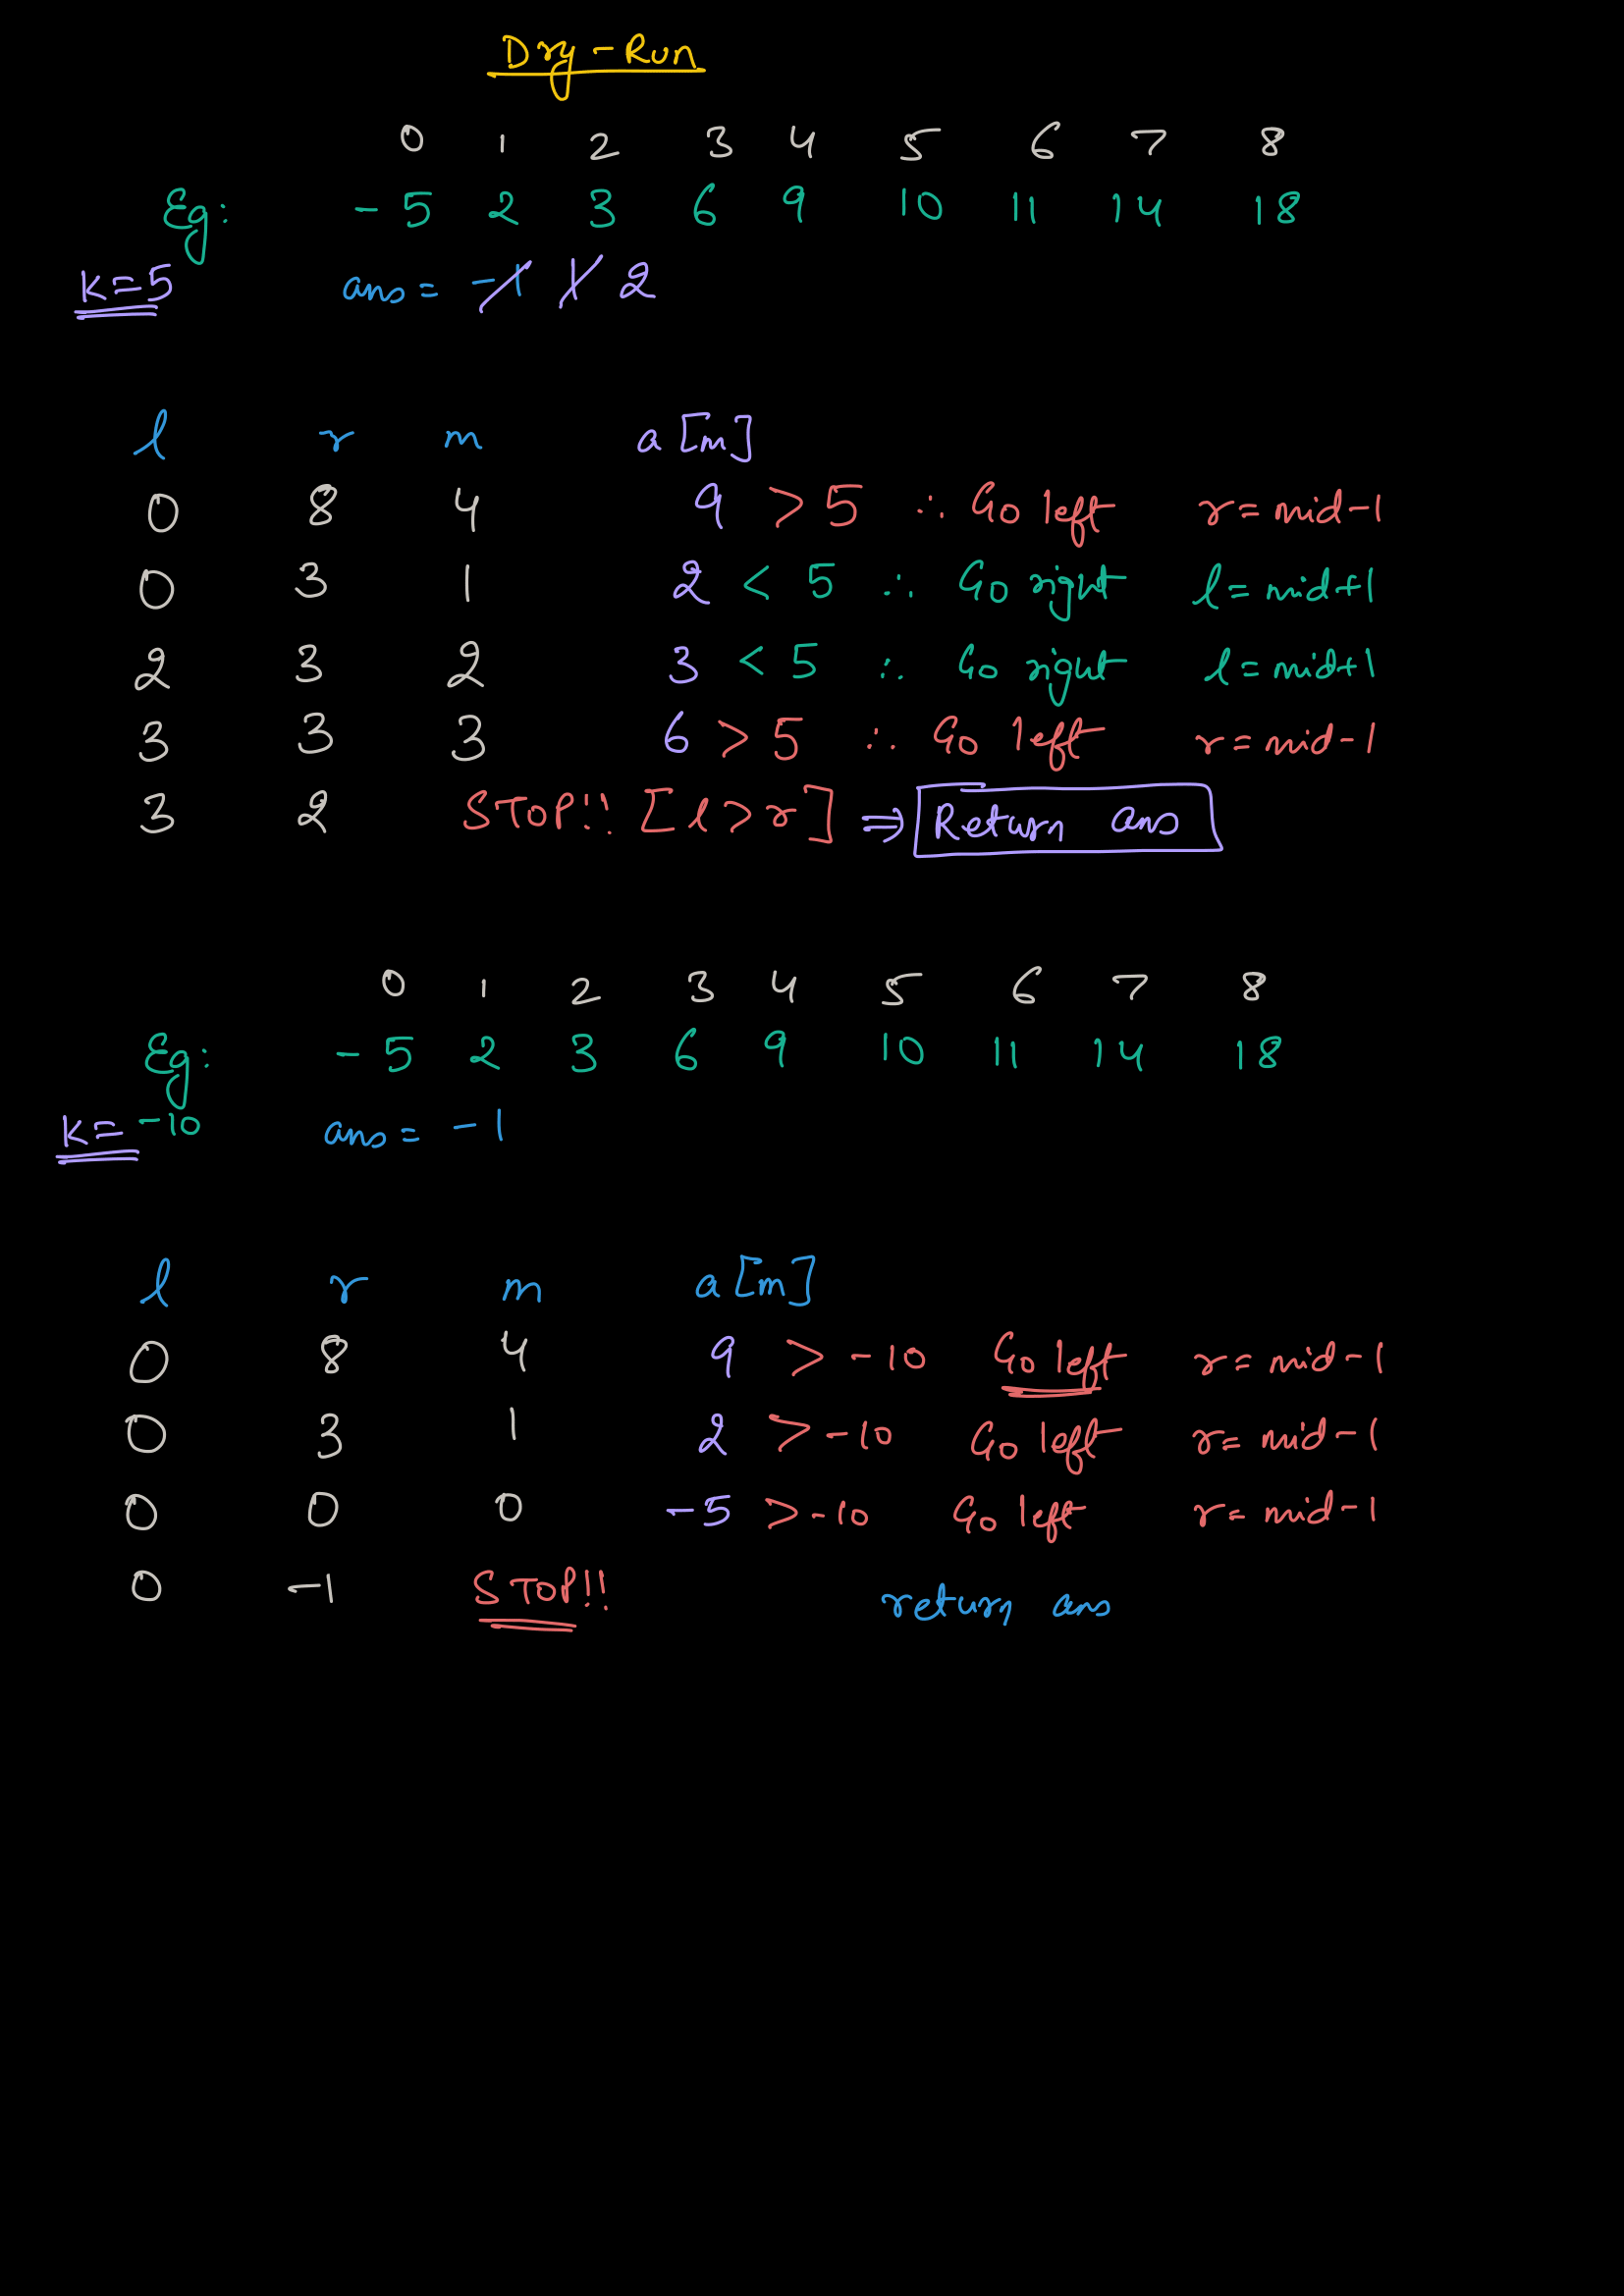 Dry-Run
0 1 2 3 4 5 6 7 8
Eg: -5 2 3 6 9 10 11 14 18
K=5 ans = -1 1 2
l r m a[m]
0 8 4 9 > 5 ∴ Go left r = mid-1
0 3 1 2 < 5 ∴ Go right l = mid+1
2 3 2 3 < 5 ∴ Go right l = mid+1
3 3 3 6 > 5 ∴ Go left r = mid-1
3 2 STOP!! [l>r] ⇒ Return ans
0 1 2 3 4 5 6 7 8
Eg: -5 2 3 6 9 10 11 14 18
K= -10 ans = -1
l r m a[m]
0 8 4 9 > -10 Go left r = mid-1
0 3 1 2 > -10 Go left r = mid-1
0 0 0 -5 > -10 Go left r = mid-1
0 -1 STOP!! return ans